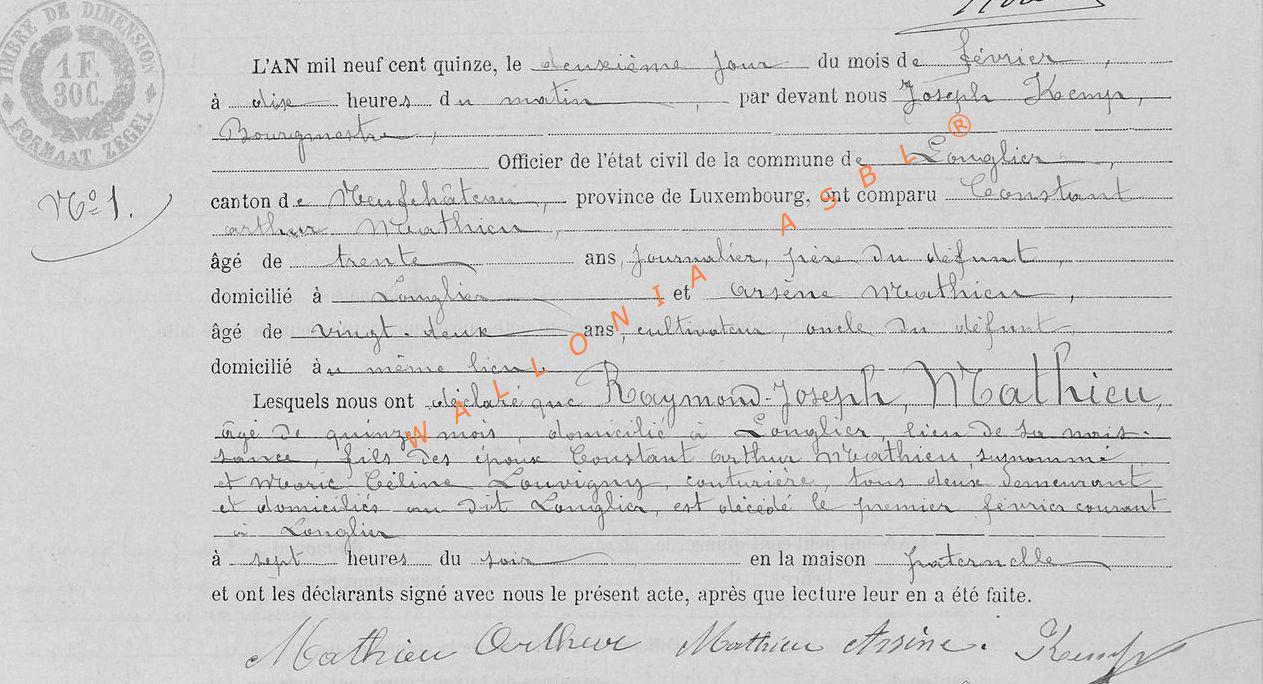 TIMBRE DE DIMENSION
1 F.
30 C.
FORMAAT ZEGEL
L'AN mil neuf cent quinze, le deuxième jour du mois de février,
à dix heures du matin, par devant nous Joseph Kemp,
Bourgmestre,
Officier de l'état civil de la commune de Longlier,
No 1.
canton de Neufchâteau, province de Luxembourg, ont comparu Constant
arthur Mathieu,
âgé de trente ans, journalier, père du défunt,
domicilié à Longlier et Arsène Mathieu,
âgé de vingt-deux ans, cultivateur, oncle du défunt,
domicilié au même lieu.
Lesquels nous ont déclaré que Raymond-Joseph, Mathieu,
âgé de quinze mois, domicilié à Longlier, lieu de sa nais-
sance, fils des époux Constant Arthur Mathieu, surnommé
et Marie Céline Louvigny, couturière, tous deux demeurant
et domiciliés au dit Longlier, est décédé le premier février courant
à Longlier
à sept heures du soir en la maison paternelle
et ont les déclarants signé avec nous le présent acte, après que lecture leur en a été faite.
Mathieu Arthur Mathieu Arsène. Kemp
WALLONIA ASBL ®